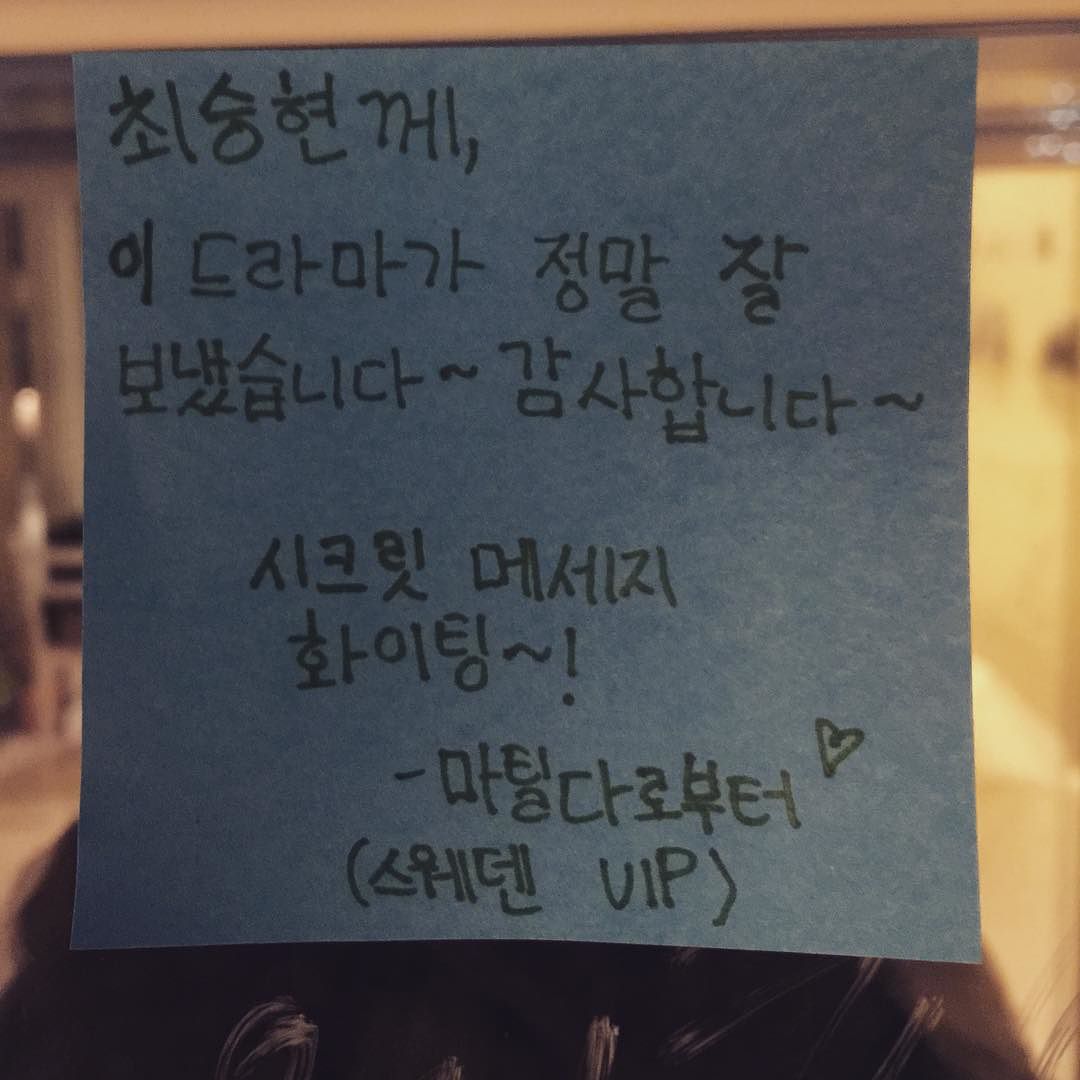 최승현께,
이 드라마가 정말 잘
보냈습니다~ 감사합니다~
시크릿 메세지
화이팅~!
-마틸다로부터♡
(스웨덴 VIP)